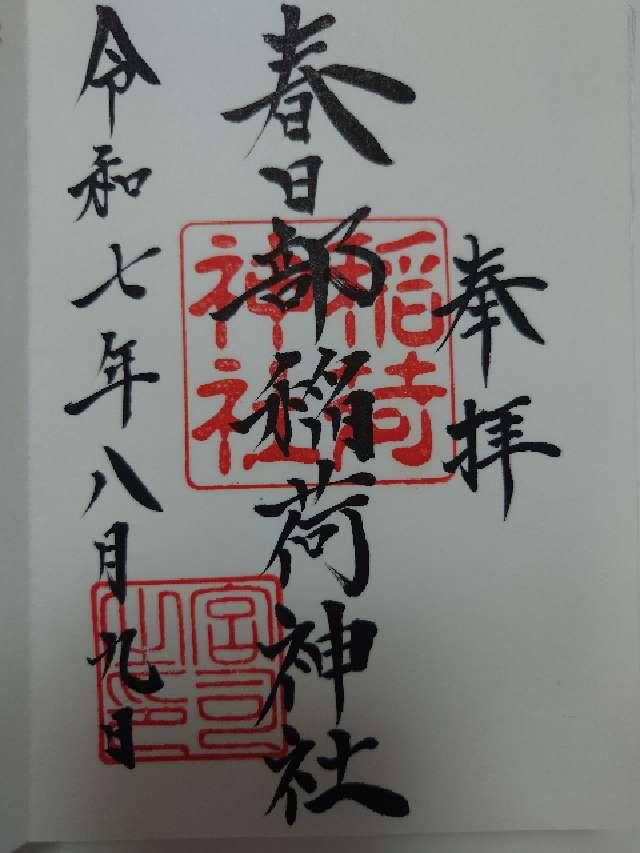 奉拝
春日部稲荷神社
稲荷神社
令和七年八月九日
宮司之印